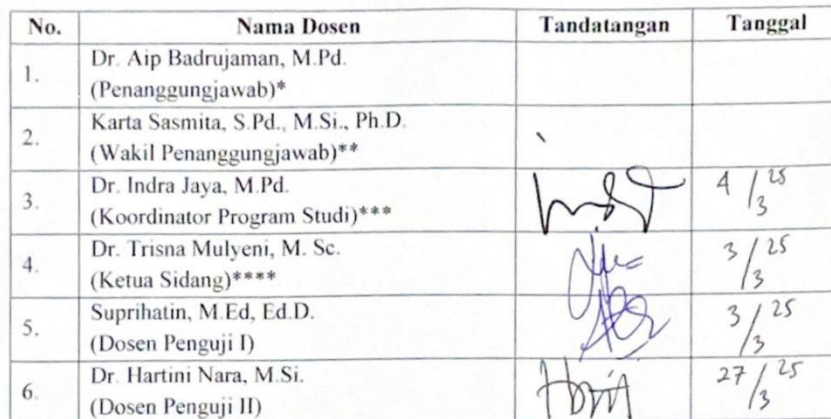 No. Nama Dosen Tandatangan Tanggal
1. Dr. Aip Badrujaman, M.Pd.
(Penanggungjawab)*
2. Karta Sasmita, S.Pd., M.Si., Ph.D.
(Wakil Penanggungjawab)**
3. Dr. Indra Jaya, M.Pd. 4/3 25
(Koordinator Program Studi)***
4. Dr. Trisna Mulyeni, M. Sc. 3/3 25
(Ketua Sidang)****
5. Suprihatin, M.Ed, Ed.D. 3/3 25
(Dosen Penguji I)
6. Dr. Hartini Nara, M.Si. 27/3 25
(Dosen Penguji II)